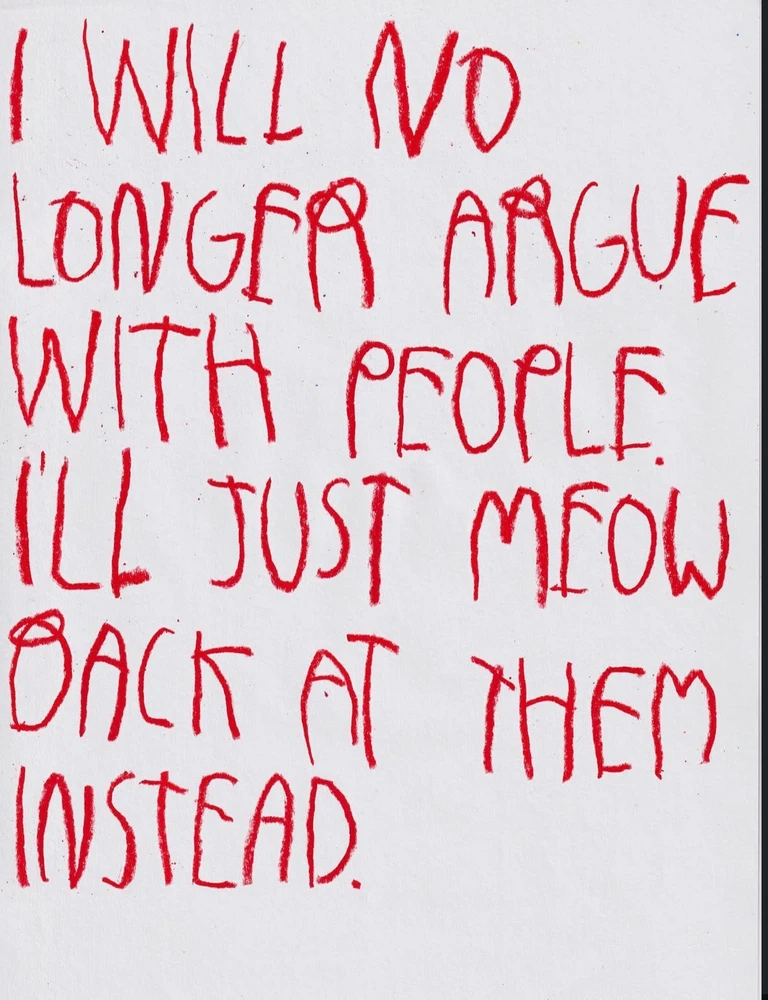 I WILL NO
LONGER ARGUE
WITH PEOPLE.
I'LL JUST MEOW
BACK AT THEM
INSTEAD.